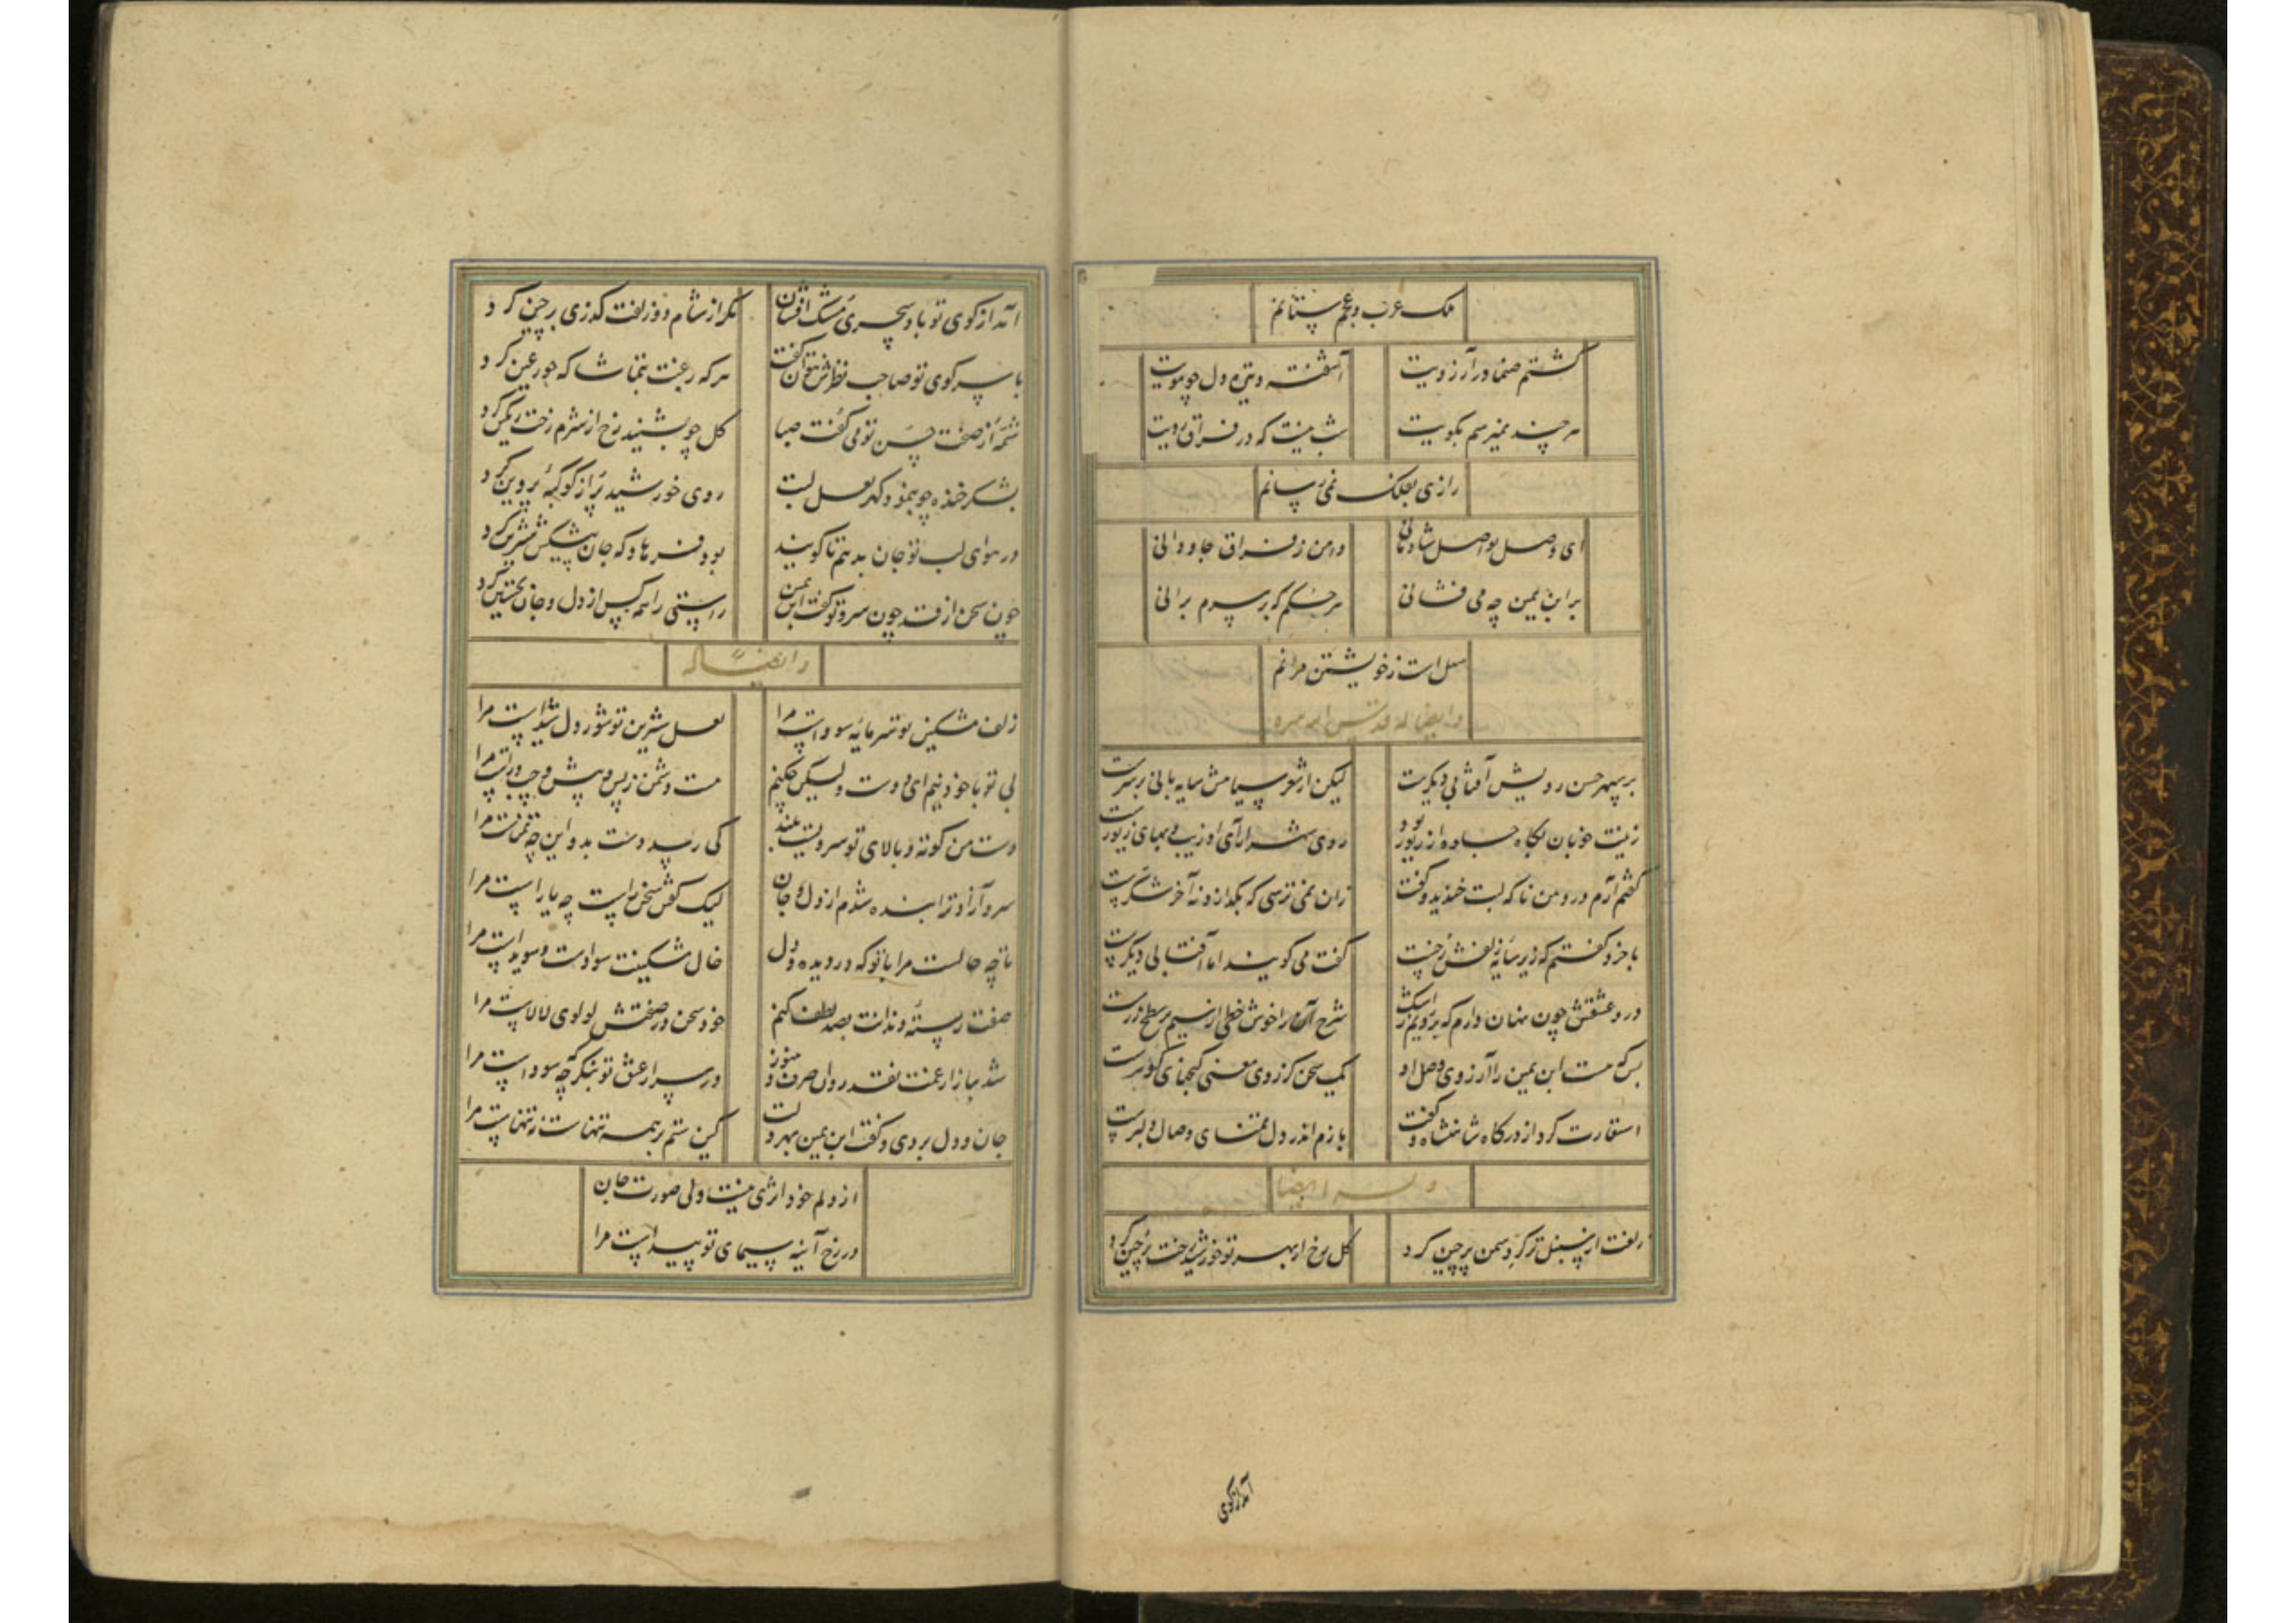 ملک عرب و عجم ستانم
گشتم صنما در آرزویت آشفته و تیره دل چو مویت
هر چند نمیرسم بکویت شب نیست که در فراق رویت
زاری بفلک نمی رسانم
ای وصل تو اصل شادمانی دامن ز فراق جاودانی
بر ابن یمین چه می فشانی هر حکم که بر سرم برانی
سهل است ز خویشتن مرانم
وایضا له قدس سره
بر سپهر حسن رویش آفتابی دیگرست لیکن از شعر سیاهش سایه بانی بر سرست
زینت خوبان بگاه جلوه از زیور بود روی شهر آرای او زیب و بهای زیورست
گفتم آرم در دمن ناگه لبت خندید و گفت زان نمی ترسی که بگدازد نه آخر شکرست
با خرد گفتم که زیر سایه زلفش رخست گفت می گویند اما آفتابی دیگرست
درد عشقش چون نهان دارم که بر رویم ز اشک شرح آن را خوش خطی از سیم بر سطح زرست
بس که هست ابن یمین را آرزوی وصل او یک سخن کز وی معنی گنجهای گوهرست
استعارت کرد از درگاه شاهنشاه و گفت بازم اندر دل تمنای وصال دلبرست
وله ایضا
زلفت از سنبل تر گرد سمن پرچین کرد گل رخ از بهر تو خورشید رخت پرچین کرد
آمد از کوی
آمد از کوی تو باد سحری مشک افشان مگر از شام دو زلفت گذری بر چین کرد
با سر کوی تو صاحب نظرش نتوان گفت هر که رغبت بتماشا که حور عین کرد
شمه از صفت حسن تو می گفت صبا گل چو بشنید رخ از شرم رخت رنگین کرد
بشکر خنده چو بنمود گهر لعل لبت روی خورشید پر از کوکبه پروین کرد
در هوای لب تو جان بدهم تا گویند بود فرهاد که جان پیشکش شیرین کرد
چون سخن از قد چون سرو تو گفت ابن یمین راستی را همه کس از دل و جان تحسین کرد
وایضا له
زلف مشکین تو سرمایه سوداست مرا لعل شیرین تو شور دل شیداست مرا
بی تو با خود نیم ای دوست ولیکن چکنم هست دشمن ز پس و پیش و چپ و راست مرا
دست من کوته و بالای تو سرویست بلند کی رسد دست بدو این چه تمناست مرا
سرو آزاد ترا بنده شدم از دل و جان لیک گفتن سخن راست چه یاراست مرا
تا چه حالست مرا با تو که در دیده و دل خال مشکینت سوادست و سویداست مرا
صفت رسته دندانت بصد لطف کنم خود سخن در صفتش لولوی لالاست مرا
شد ببازار غمت نقد روان صرف و هنوز در سر از عشق تو بنگر که چه سوداست مرا
جان و دل بردی و گفت ابن یمین بهر دلت کین ستم بر همه تنهاست نه تنهاست مرا
از دلم خود اثری نیست ولی صورت جان
در رخ آینه سیمای تو پیداست مرا